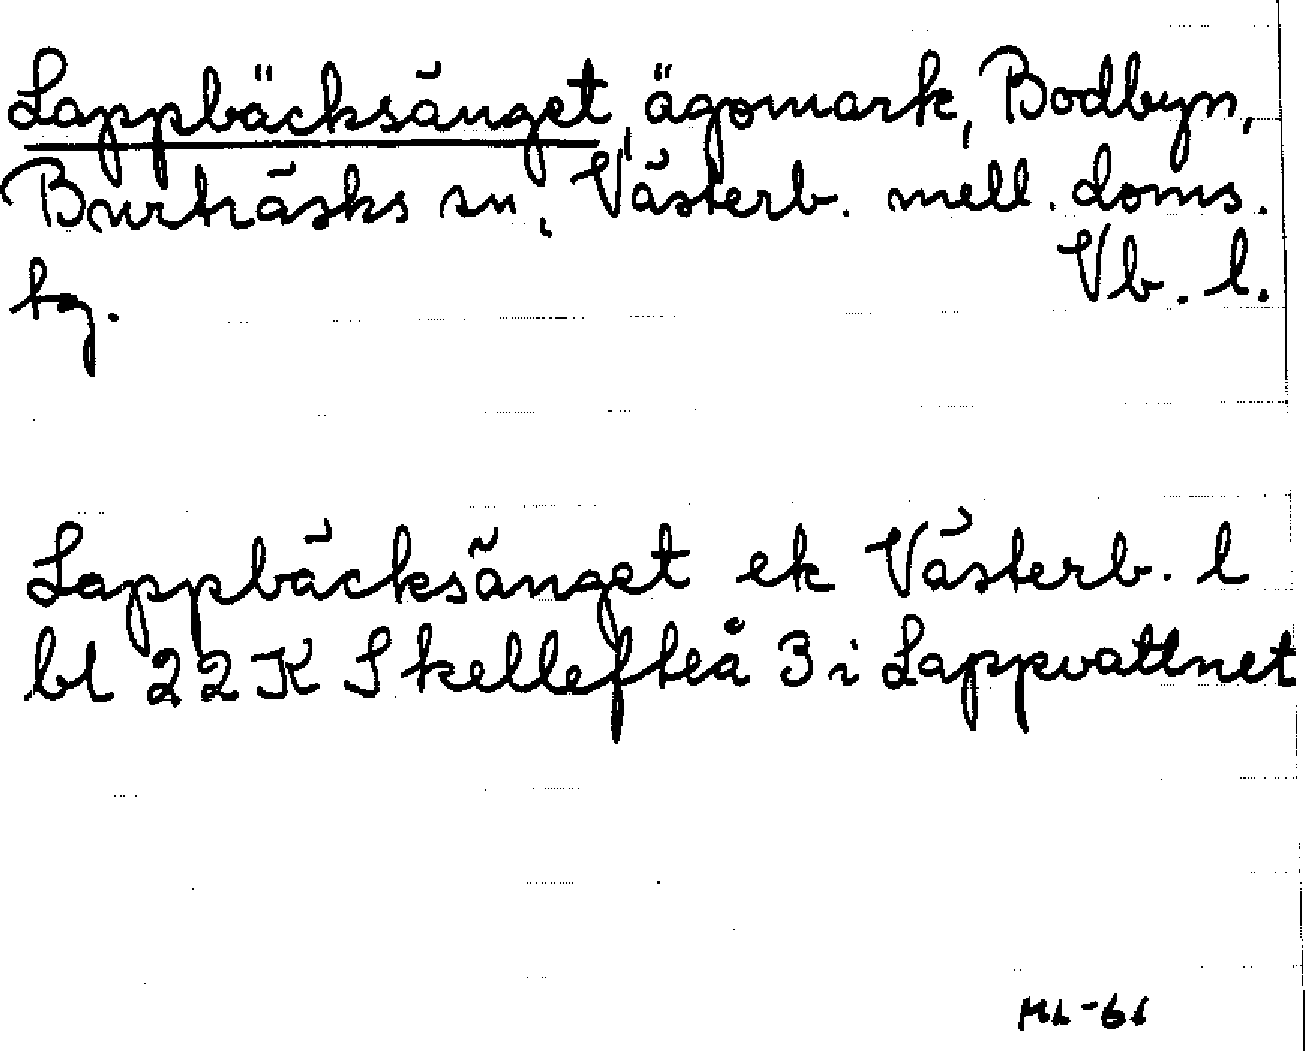 Lappbäcksänget, ägomark, Bodbyn,
Burträsks sn, Västerb. mell. doms.
tg. Vb. l.
Lappbäcksänget ek Västerb. l
bl 22K Skellefteå 3 i Lappvattnet
ML-61